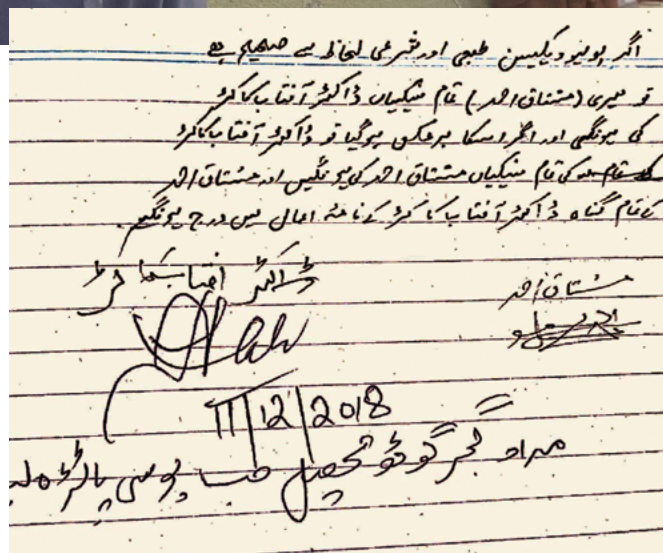 اگر پولیو ویکسین طبعی اور شرعی لحاظ سے صحیح ہے
تو میری (مشتاق احمد) تمام نیکیاں ڈاکٹر آفتاب کاکڑ
کی ہونگی اور اگر اسکا برعکس ہوگیا تو ڈاکٹر آفتاب کاکڑ
کی تمام نیکیاں مشتاق احمد کی ہونگیں اور مشتاق احمد
کے تمام گناہ ڈاکٹر آفتاب کاکڑ کے نامہ اعمال میں درج ہونگیں
ڈاکٹر آفتاب کاکڑ
مشتاق احمد
11/12/2018
تحصیل